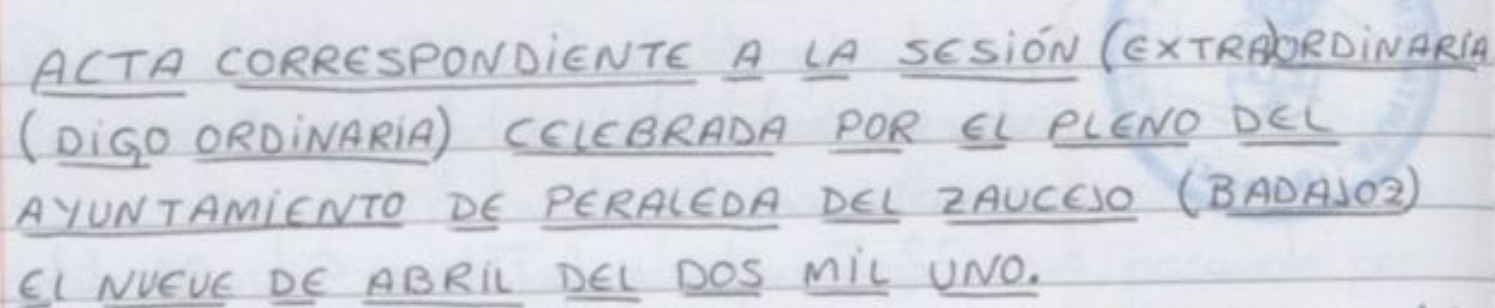 ACTA CORRESPONDIENTE A LA SESIÓN (EXTRA)ORDINARIA
(DIGO ORDINARIA) CELEBRADA POR EL PLENO DEL
AYUNTAMIENTO DE PERALEDA DEL ZAUCEJO (BADAJOZ)
EL NUEVE DE ABRIL DEL DOS MIL UNO.